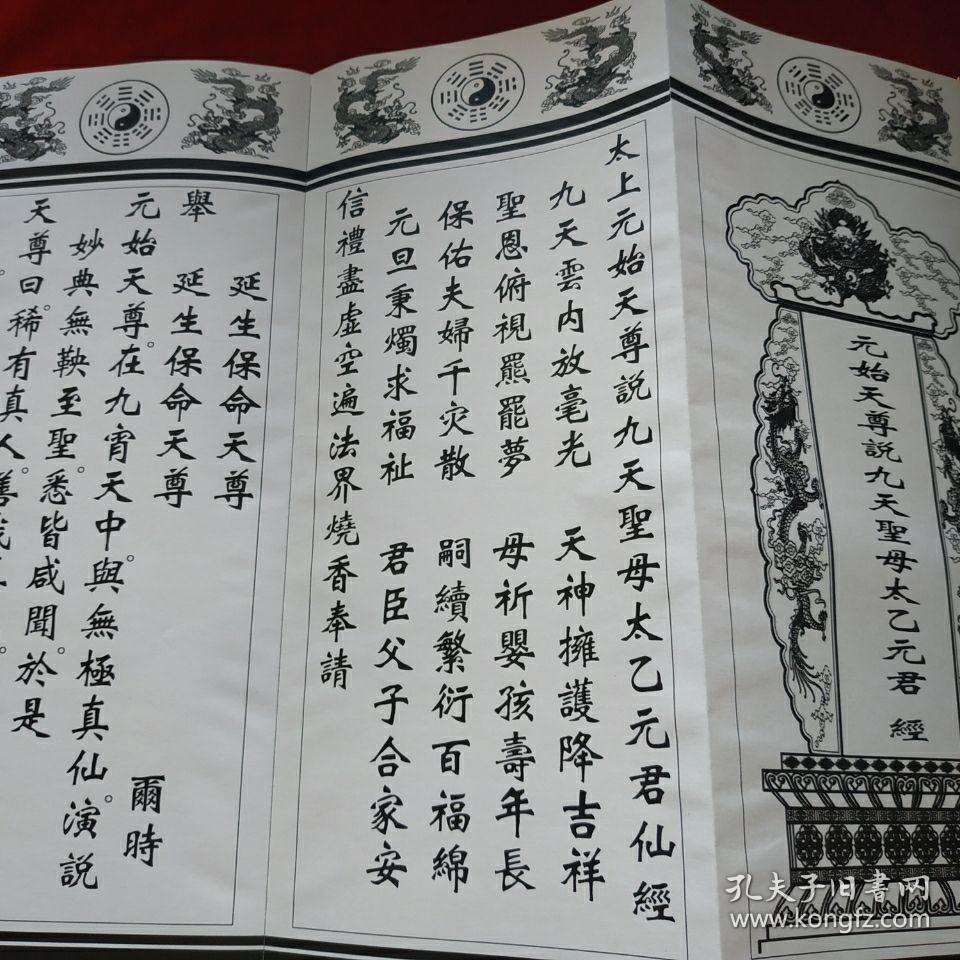 元始天尊説九天聖母太乙元君 經
太上元始天尊説九天聖母太乙元君仙經
九天雲内放毫光 天神擁護降吉祥
聖恩俯視羆羆夢 母祈嬰孩壽年長
保佑夫婦千灾散 嗣續繁衍百福綿
元旦秉燭求福祉 君臣父子合家安
信禮盡虚空遍法界燒香奉請
延生保命天尊
舉 延生保命天尊
爾時
元始天尊。在九宵天中。與無極真仙。演説
妙典無鞅至聖。悉皆咸聞。於是
天尊曰。稀有真人。善哉
孔夫子旧书网
www.kongfz.com